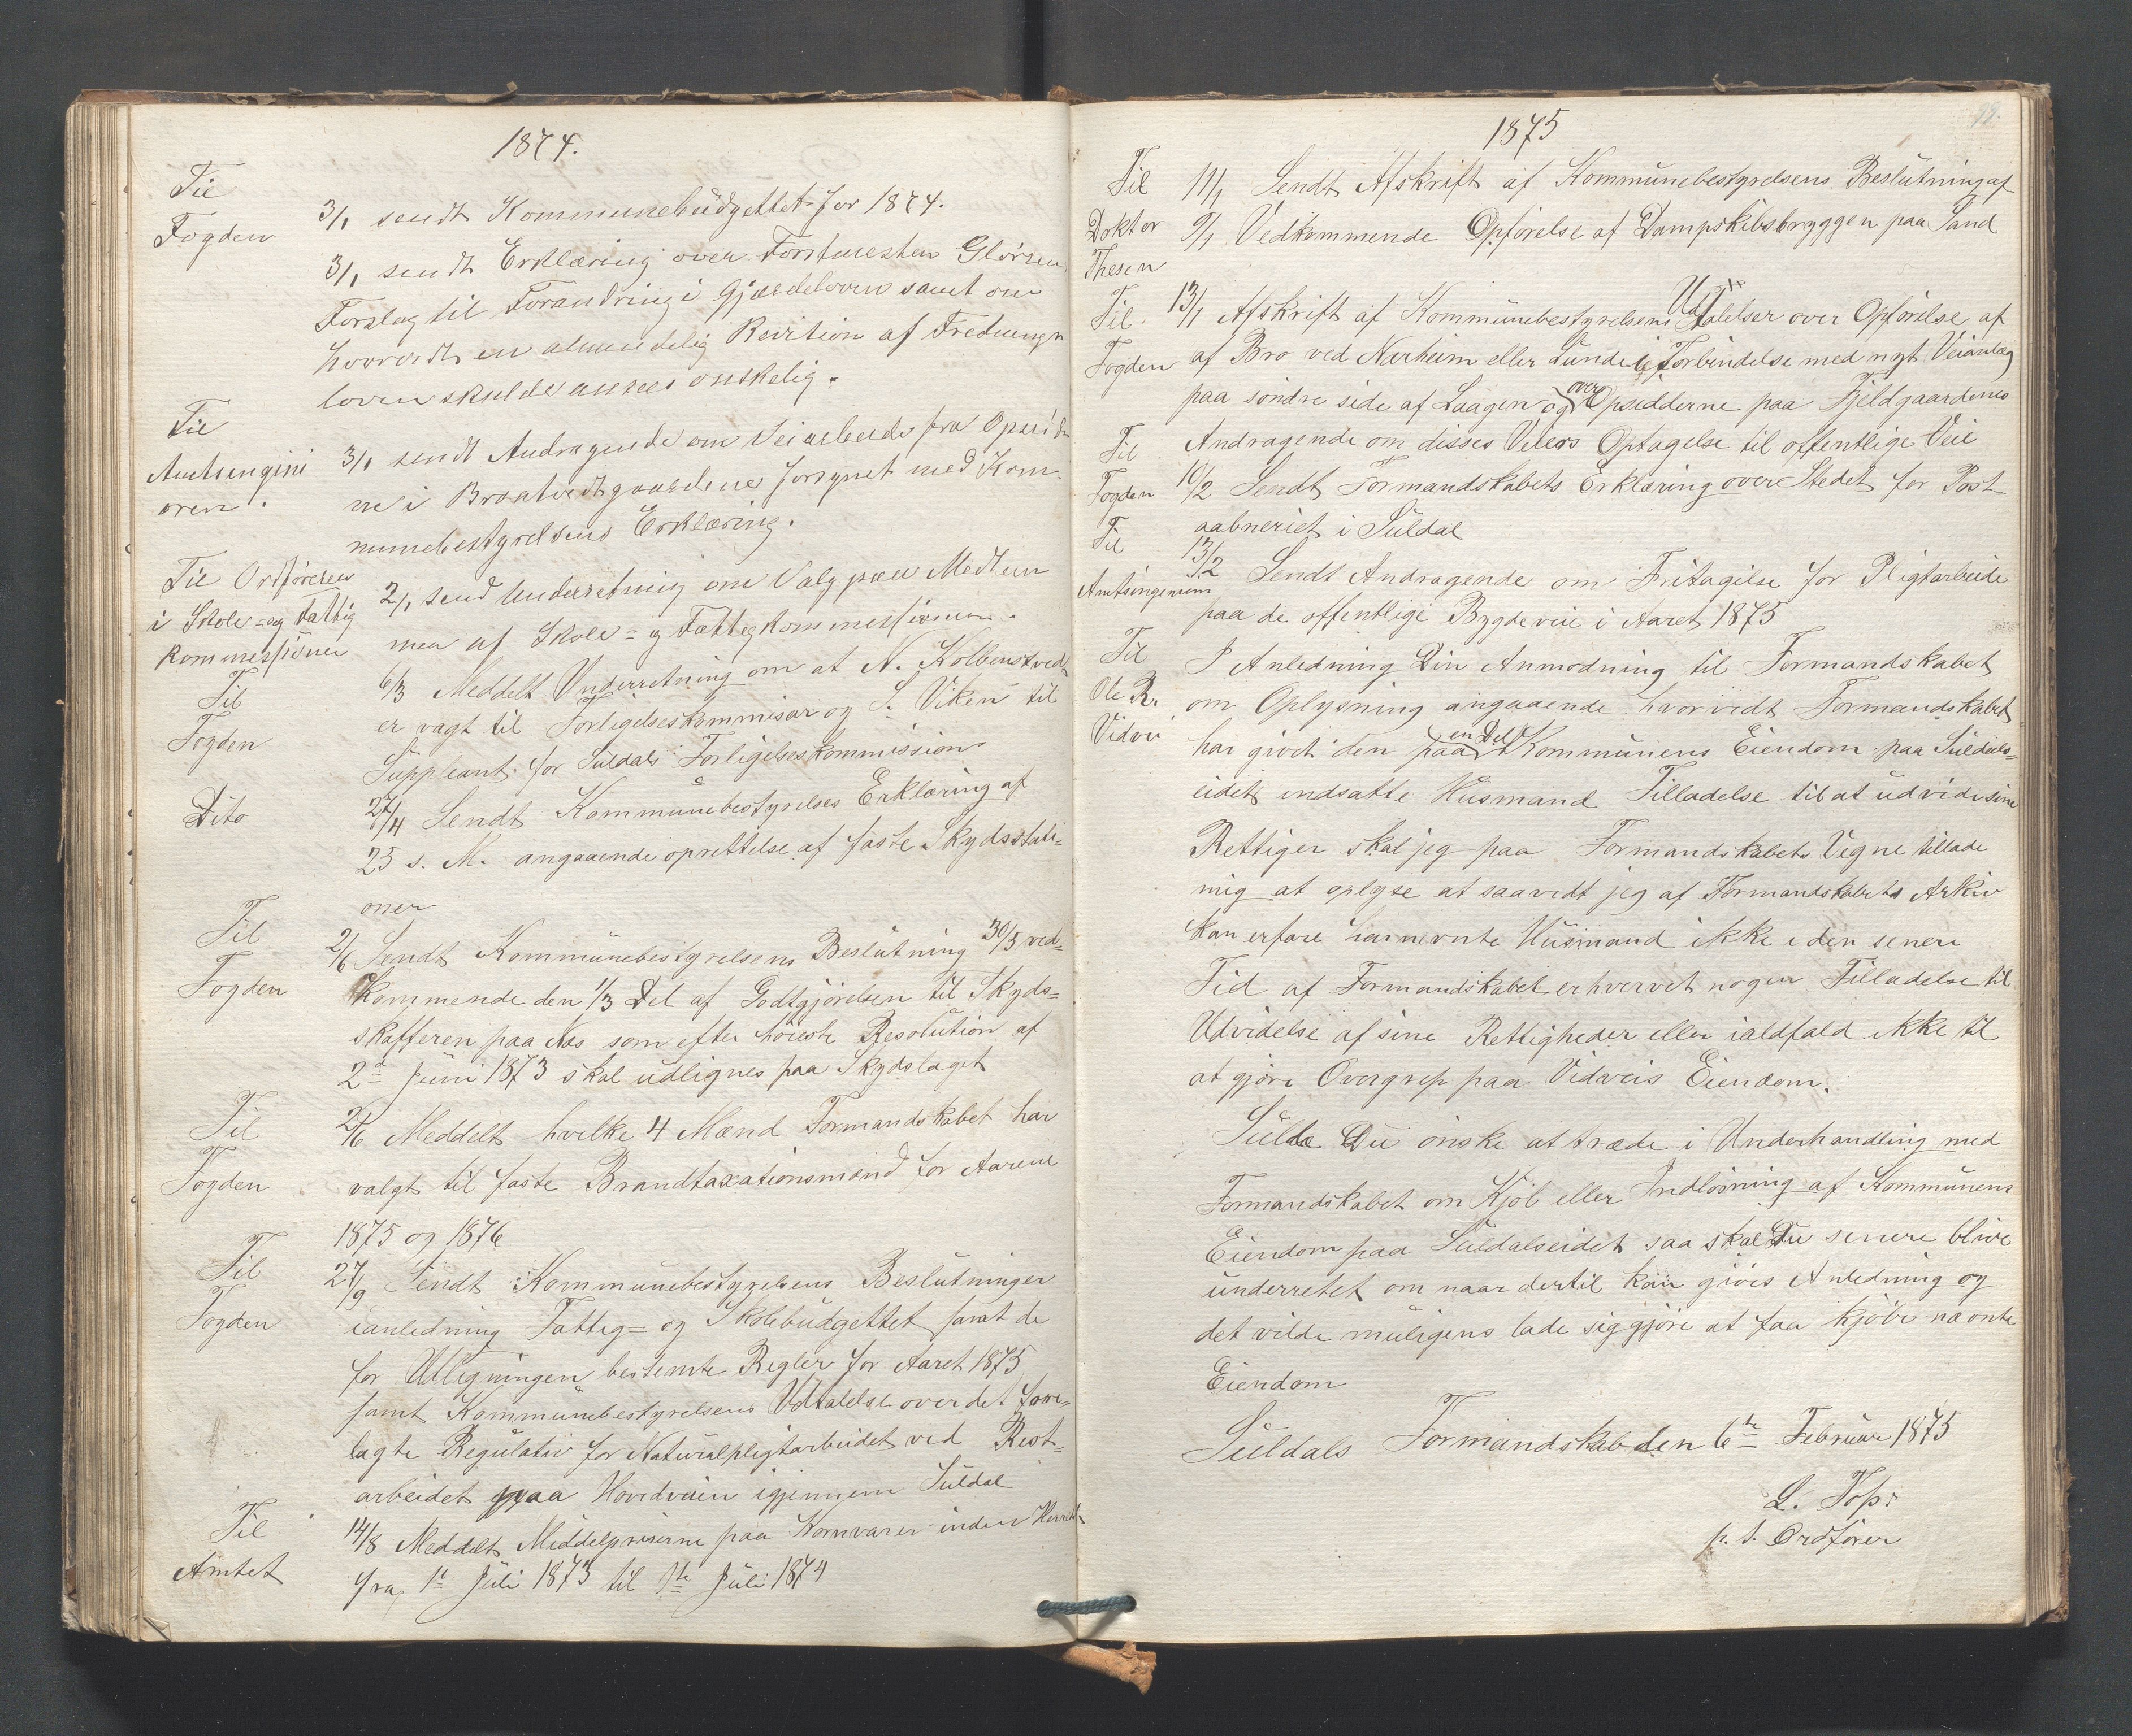 1874.
Til
Fogden
3/1 sendt Kommunebudgettet for 1874.
3/1 sendt Erklæring over Forstmesten Glörsen
Forslag til Forandring i Gjærdeloven samt om
hvorvidt en almindelig Revition af Frednings
loven skulde ansees önskelig.
Til
Amtsingini
ören.
3/1 sendt Andragende om Veiarbeide fra Opsidde
ne i Bratvedtgaardene forsynet med Kom-
munebestyrelsens Erklæring.
Til Ordförerne
i Skole= og Fattig
kommissionen
2/1 send Underretning om Valg paa Medlem
mer af Skole= og Fattigkommissionen.
Til
Fogden
6/3 Meddelt Underretning om at N. Kolbenstvedt
er vagt til Forligelseskommisar og S. Viken til
Suppleant for Suldals Forligelseskommission
Dito
27/4 Sendt Kommunebestyrelses Erklæring af
25 s. M. angaaende oprettelse af faste Skydsstati=
oner
Til
Fogden
2/6 Sendt Kommunebestyrelsens Beslutning 30/5 ved=
kommende den 1/3 Del af Godtgjörelsen til Skyds=
skafferen paa Næs som efter höieste Resolution af
2d Juni 1873 skal udlignes paa Skydslaget
Til
Fogden
2/6 Meddelt hvilke 4 Mænd Formandskabet har
valgt til faste Brandtaxationsmænd for Aarene
1875 og 1876
Til
Fogden
27/9 Sendt Kommunebestyrelsens Beslutninger
ianledning Fattig= og Skolebudgettet samt de
for Udligningen bestemte Regler for Aaret 1875
samt Kommunebestyrelsens Udtalelse over det fore=
lagte Regulativ for Naturalpligtarbeidet ved Rest=
arbeidet paa Hovedveien igjennem Suldal
Til
Amtet
14/8 Meddelt Middelpriserne paa Kornvarer inden Herredet
fra 1te Juli 1873 til 1te Juli 1874
99.
1875
Til
Doktor
Thesen
11/1 Sendt Afskrift af Kommunebestyrelsens Beslutning af
9/1 Vedkommende Opförelse af Dampskibsbryggen paa Sand
Til
Fogden
13/1 Afskrift af Kommunebestyrelsens Udtalelser over Opförelse af
af Bro ved Nærheim eller Lunde i Forbindelse med nyt Veianlæg
paa söndre side af Laagen og over Opsidderne paa Fjeldgaardenes
Andragende om disses Veiers Optagelse til offentlige Veie
Til
Fogden
10/2 Sendt Formandskabets Erklæring over Stedet for Post=
aabneriet i Suldal
Til
Amtsingeniören
13/2 Sendt Andragende om Fritagelse for Pligtarbeide
paa de offentlige Bygdeveie i Aaret 1875
Til
Ole R.
Vidvei
I Anledning Din Anmodning til Formandskabet
om Oplysning angaaende hvorvidt Formandskabet
har givet den paa en Del Kommunens Eiendom paa Suldals=
eidet indsatte Husmand Tilladelse til at udvide sine
Rettiger skal jeg paa Formandskabets Vegne tillade
mig at oplyse at saavidt jeg af Formandskabets Arkiv
kan erfare har nævnte Husmand ikke i den senere
Tid af Formandskabet erhvervet nogen Tilladelse til
Udvidelse af sine Rettigheder eller ialdfald ikke til
at gjöre Overgrep paa Vidveis Eiendom.
Sulde Du önske at træde i Underhandling med
Formandskabet om Kjöb eller Indlösning af Kommunens
Eiendom paa Suldalseidet saa skal Du senere blive
underretet om naar dertil kan gives Anledning og
det vilde muligens lade sig gjöre at faa kjöbe nævnte
Eiendom
Suldals Formandskab den 6te Februar 1875
L. Tofs:
p. t. Ordförer